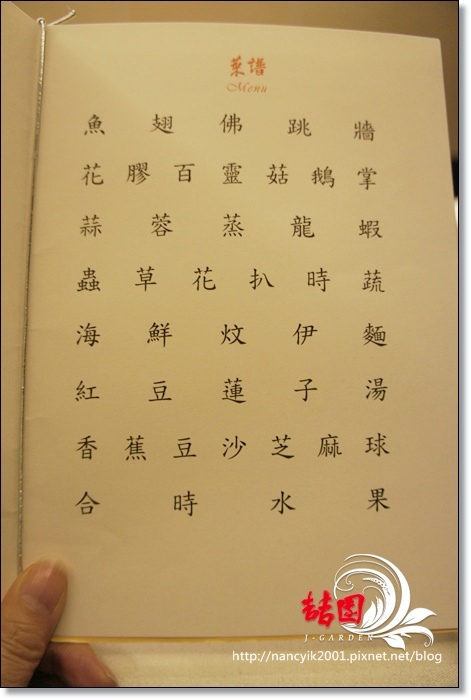 菜譜
Menu
魚翅佛跳牆
花膠百靈菇鵝掌
蒜蓉蒸龍蝦
蟲草花扒時蔬
海鮮炆伊麵
紅豆蓮子湯
香蕉豆沙芝麻球
合時水果
喆園
J-GARDEN
http://nancyik2001.pixnet.net/blog